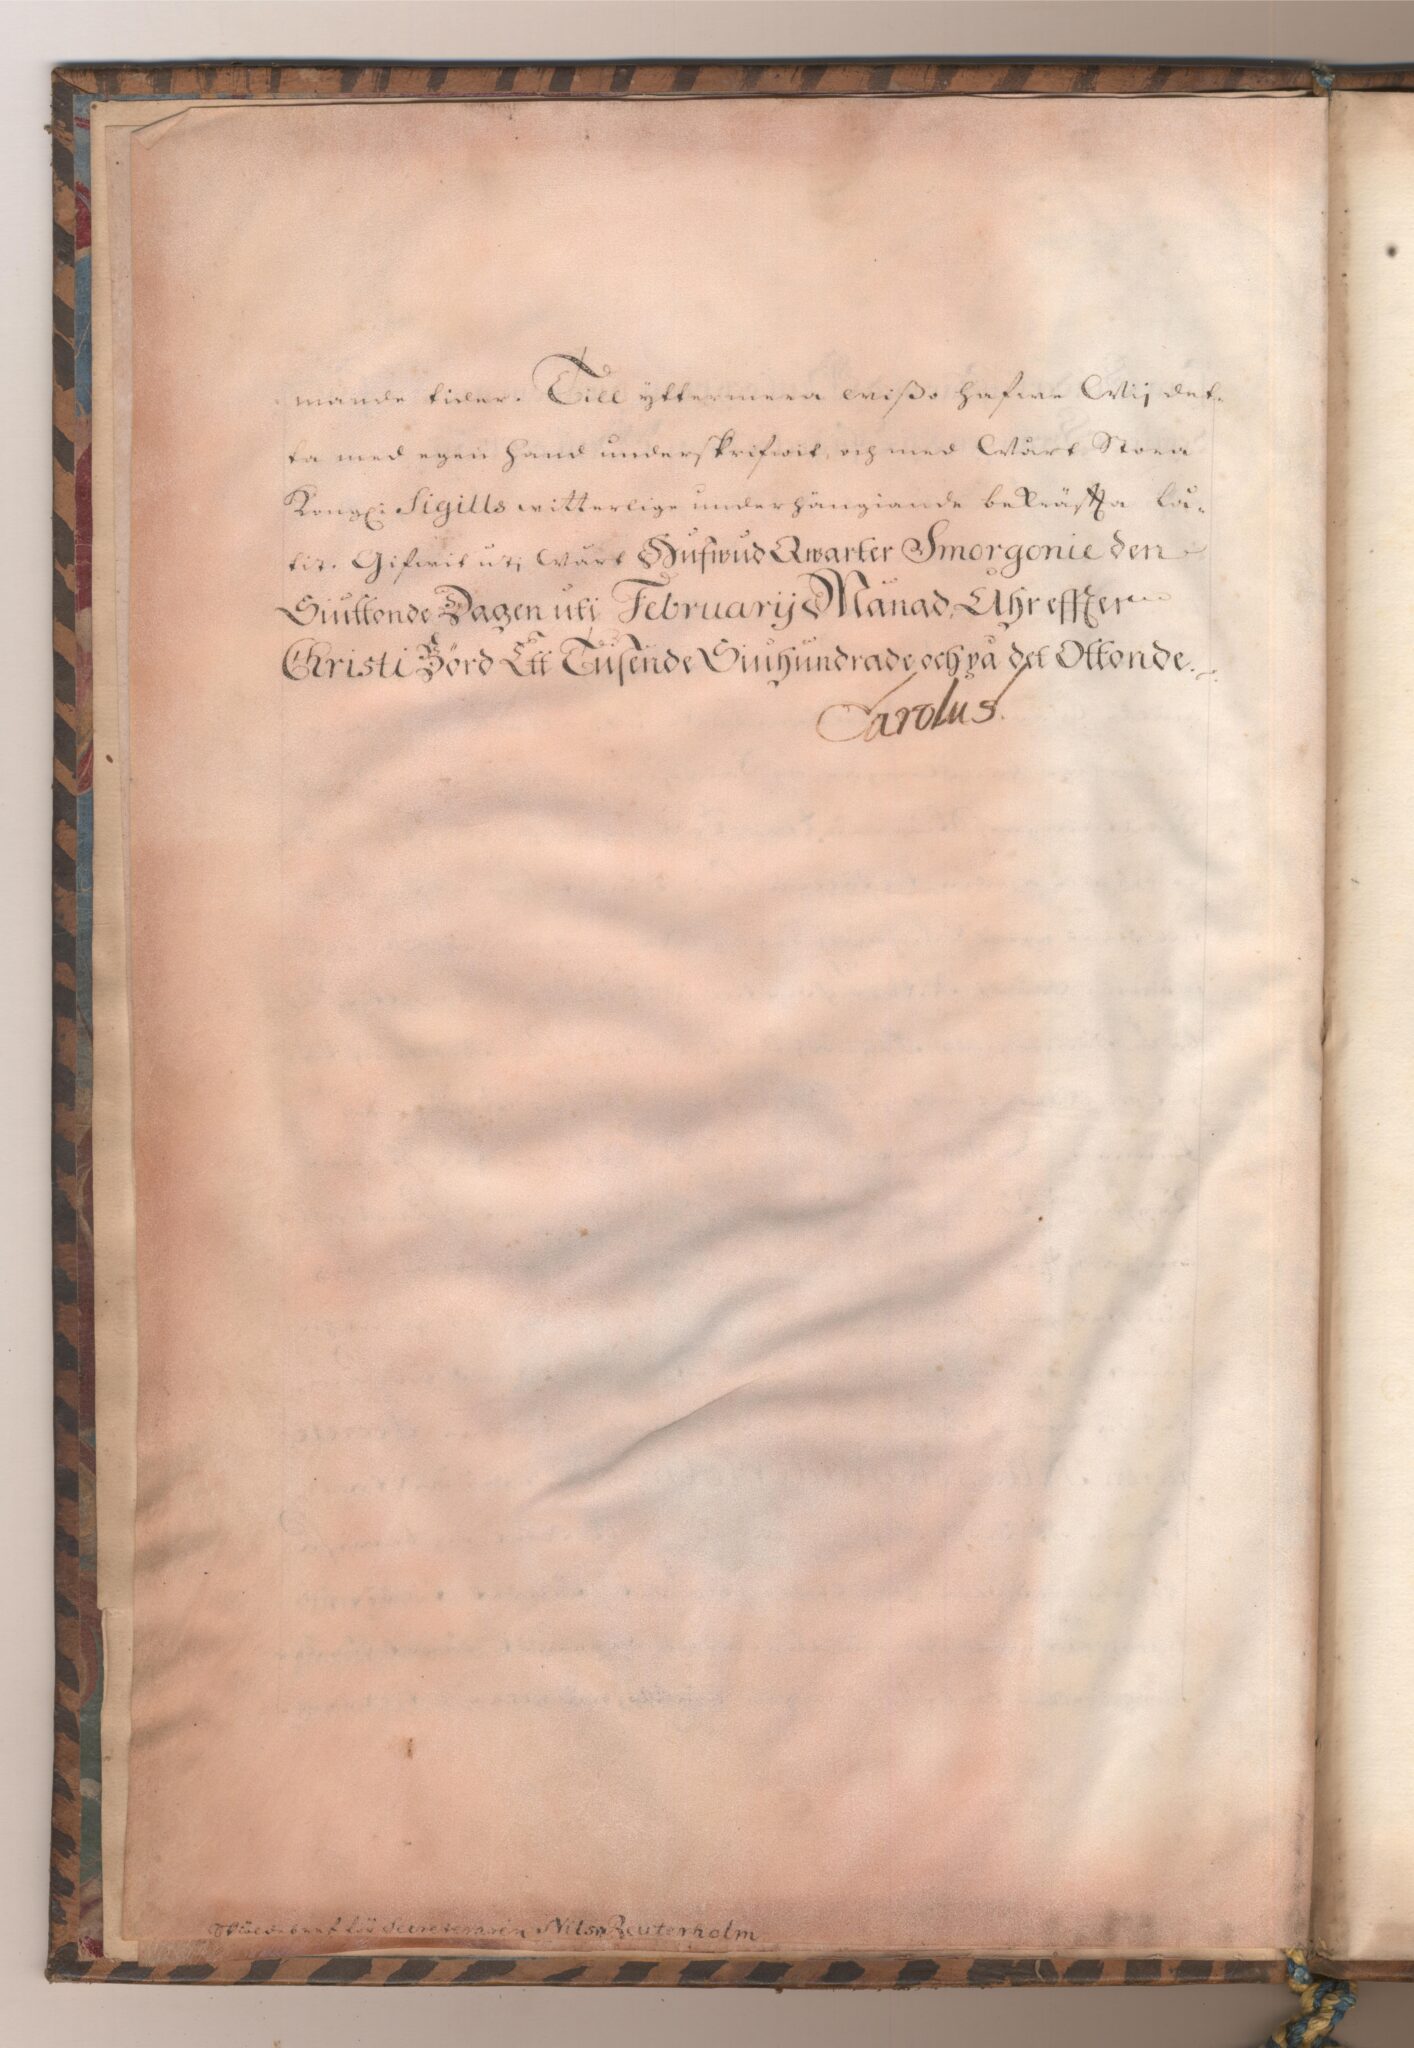 mande tider. Till ÿttermera wißo hafwe Wij det-
ta med egen hand underskrifwit, och med Wårt Stora
Kongl: Sigills witterlige underhängiande bekräffta lå-
tit. Gifwit uti wårt Hufwud Qwarter Smorgonie den
Siuttonde Dagen utj Februarij Månad, Åhr effter
Christi Börd Ett Tusende Siuhundrade och på det Ottonde.
Carolus
Sköldebref för Secreteraren Nils Reuterholm